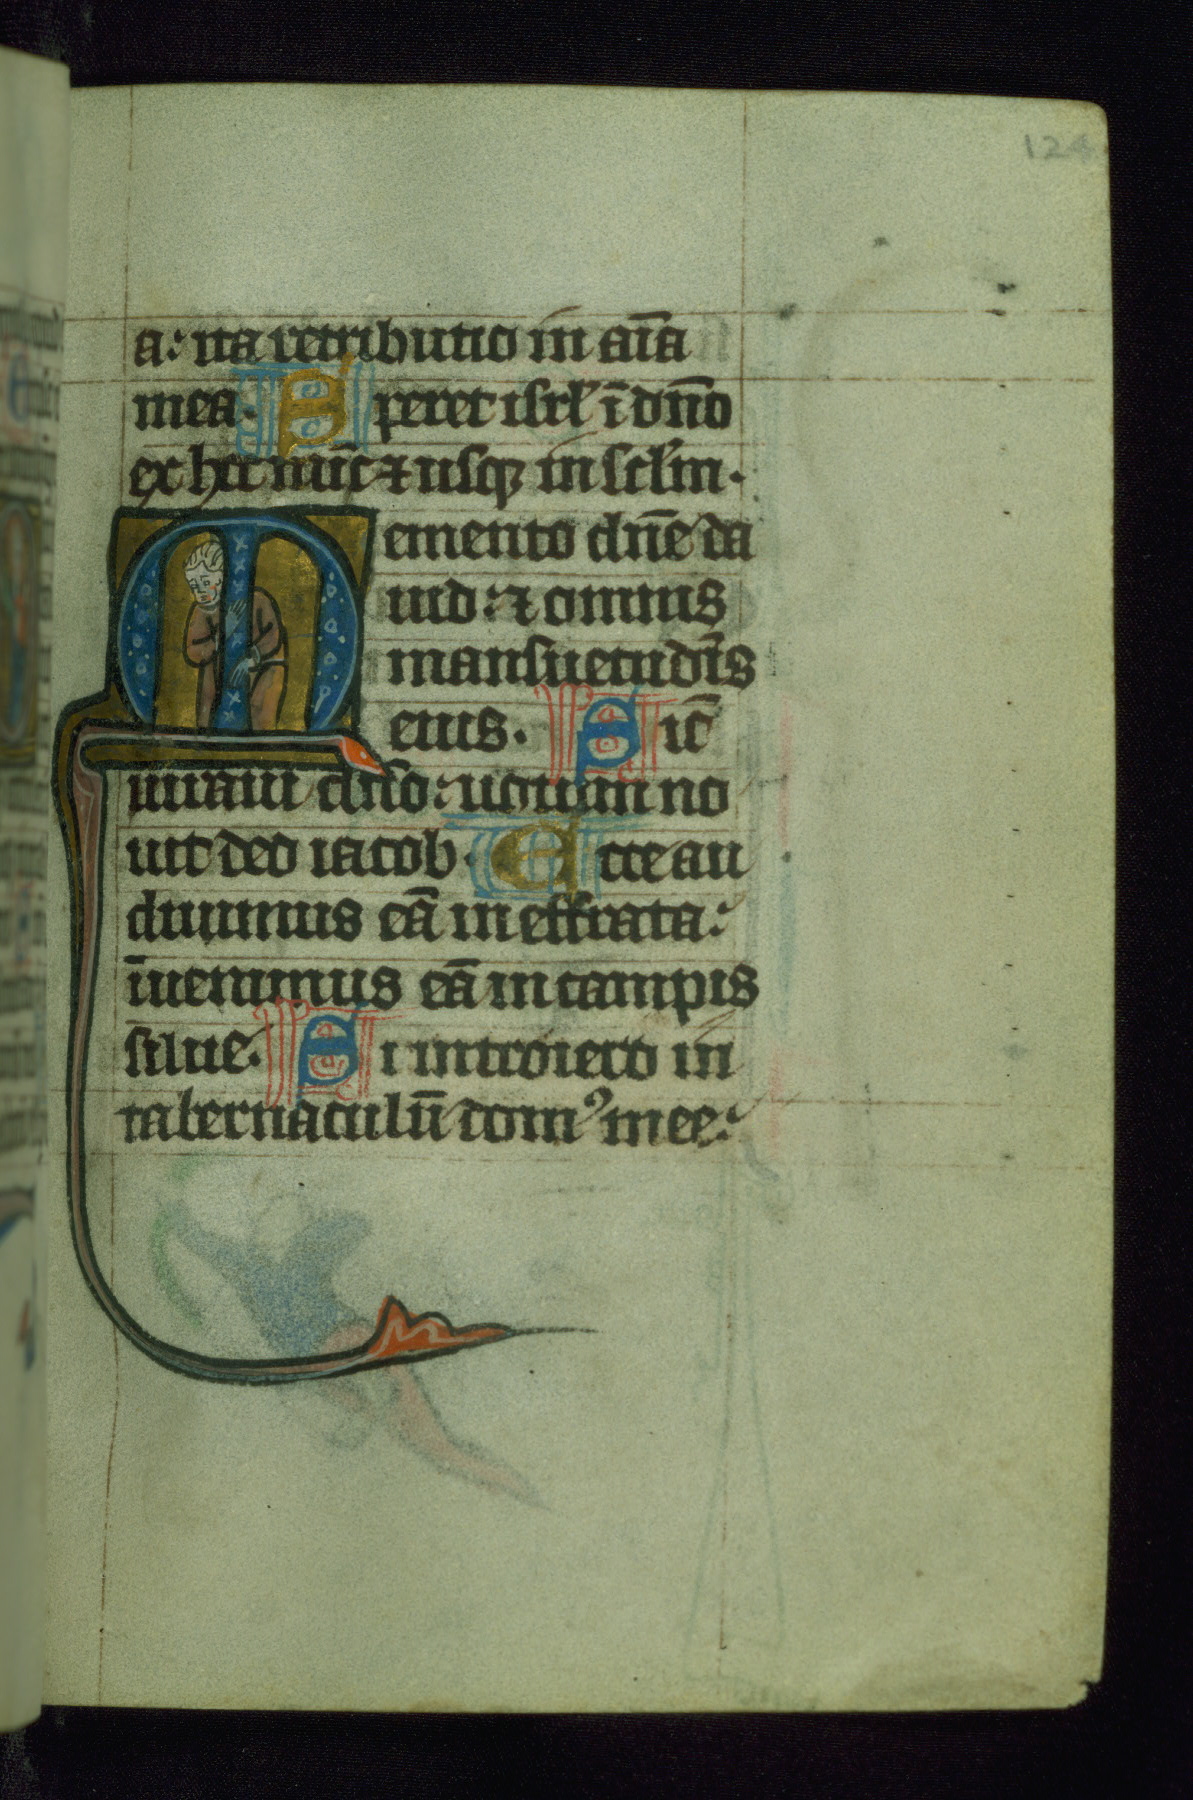 124
a: ita retributio in aīa
mea. Speret isrl̓ ī dño
ex hoc nūc ⁊ usq; in sclm̄.
Memento dñe da
uid: ⁊ omnis
mansuetudīs
eius. Sic̄
iurauit dño: uotum uo
uit deo iacob. Ecce au
diuimus eā in effrata:
īuenimus eā in campis
silue. Si introiero in
tabernaculū domꝰ mee: